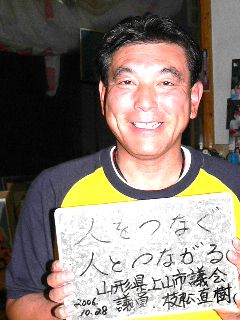 人をつなぐ
人とつながる
山形県上山市議会
2006 議員 枝松直樹
10.28